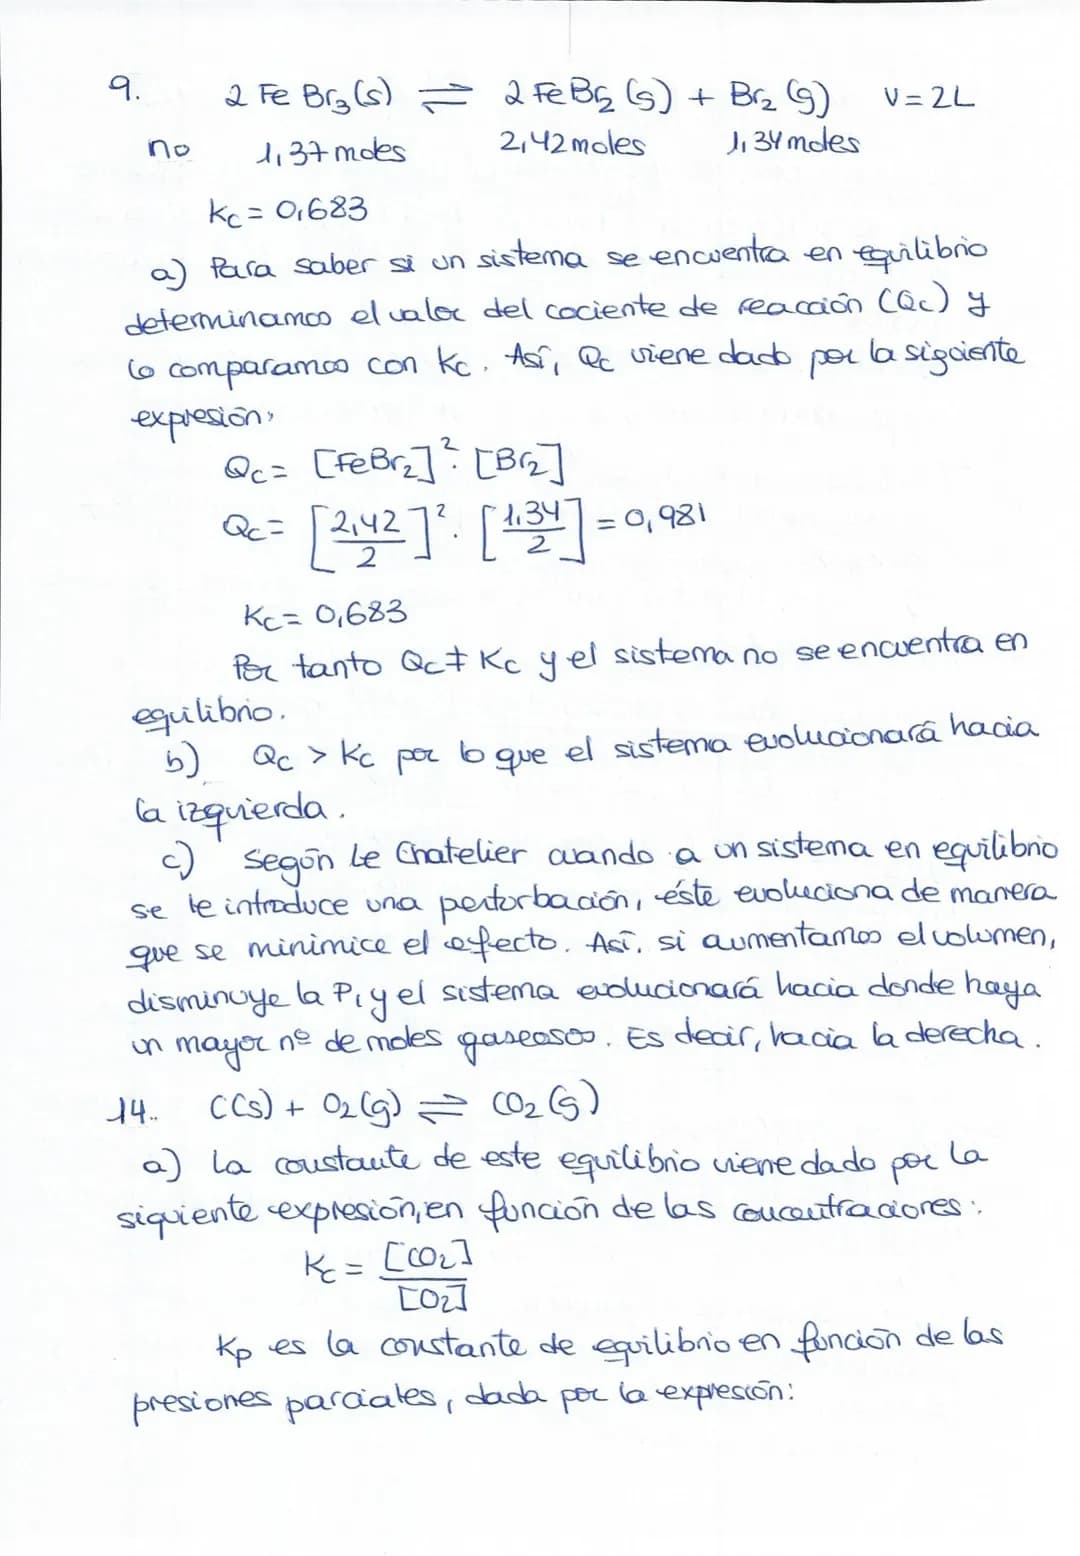 9. 2 Fe Br₃(s) ⇌ 2 FeBr₂ (s) + Br₂ (g) V = 2L
no 1,37 moles 2,42 moles 1,34 moles
Kc = 0,683
a) Para saber si un sistema se encuentra en equilibrio
determinamos el valor del cociente de reacción (Qc) y
lo comparamos con Kc. Así, Qc viene dado por la siguiente
expresión:
Qc = [FeBr₂]² · [Br₂]
Qc = [2,42/2]² · [1,34/2] = 0,981
Kc = 0,683
Por tanto Qc ≠ Kc y el sistema no se encuentra en
equilibrio.
b) Qc > Kc por lo que el sistema evolucionará hacia
la izquierda.
c) Según Le Chatelier cuando a un sistema en equilibrio
se le introduce una perturbación, éste evoluciona de manera
que se minimice el efecto. Así, si aumentamos el volumen,
disminuye la P, y el sistema evolucionará hacia donde haya
un mayor nº de moles gaseosos. Es decir, hacia la derecha.
14.. C(s) + O₂(g) ⇌ CO₂(g)
a) La constante de este equilibrio viene dado por la
siguiente expresión, en función de las concentraciones:
Kc = [CO₂]/[O₂]
Kp es la constante de equilibrio en función de las
presiones parciales, dada por la expresión: